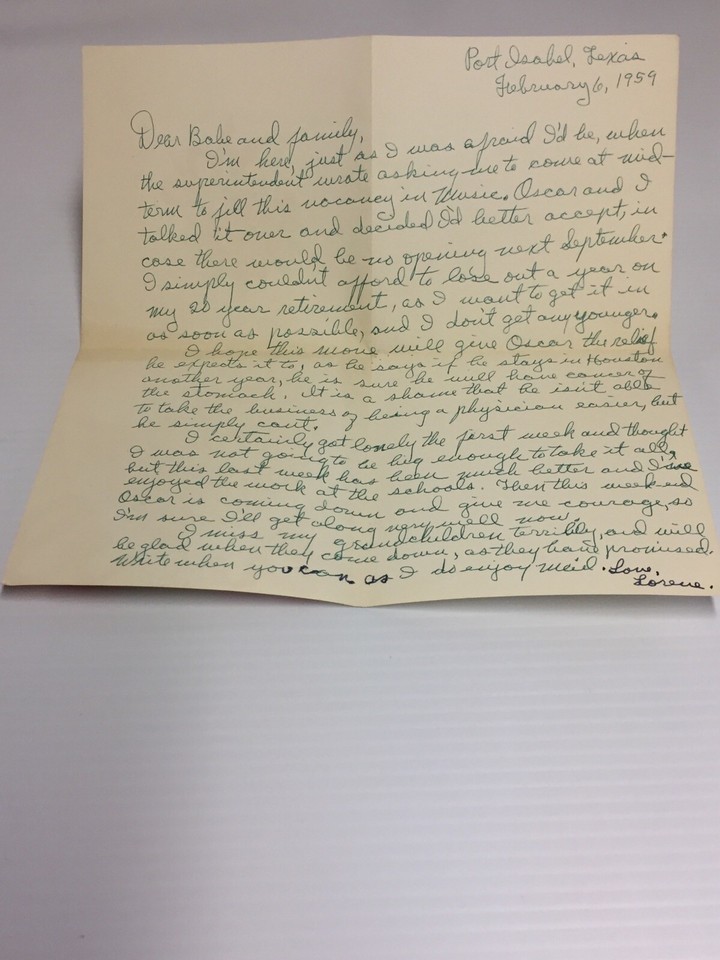 Port Isabel, Texas
February 6, 1959
Dear Babe and family,
I'm here, just as I was afraid I'd be, when
the superintendent wrote asking me to come at mid-
term to fill this vacancy in Music. Oscar and I
talked it over and decided I'd better accept, in
case there would be no opening next September.
I simply couldn't afford to lose out a year on
my 20 year retirement, as I want to get it in
as soon as possible, and I don't get any younger.
I hope this move will give Oscar the relief
he expects it to, as he says if he stays in Houston
another year, he is sure he will have cancer of
the stomach. It is a shame that he isn't able
to take the business of being a physician easier, but
he simply can't.
I certainly got lonely the first week and thought
I was not going to be big enough to take it all,
but this last week has been much better and I've
enjoyed the work at the schools. Then this weekend
Oscar is coming down and give me courage, so
I'm sure I'll get along very well now.
I miss my grandchildren terribly, and will
be glad when they come down, as they have promised.
Write when you can as I do enjoy mail. Love,
Lorene.